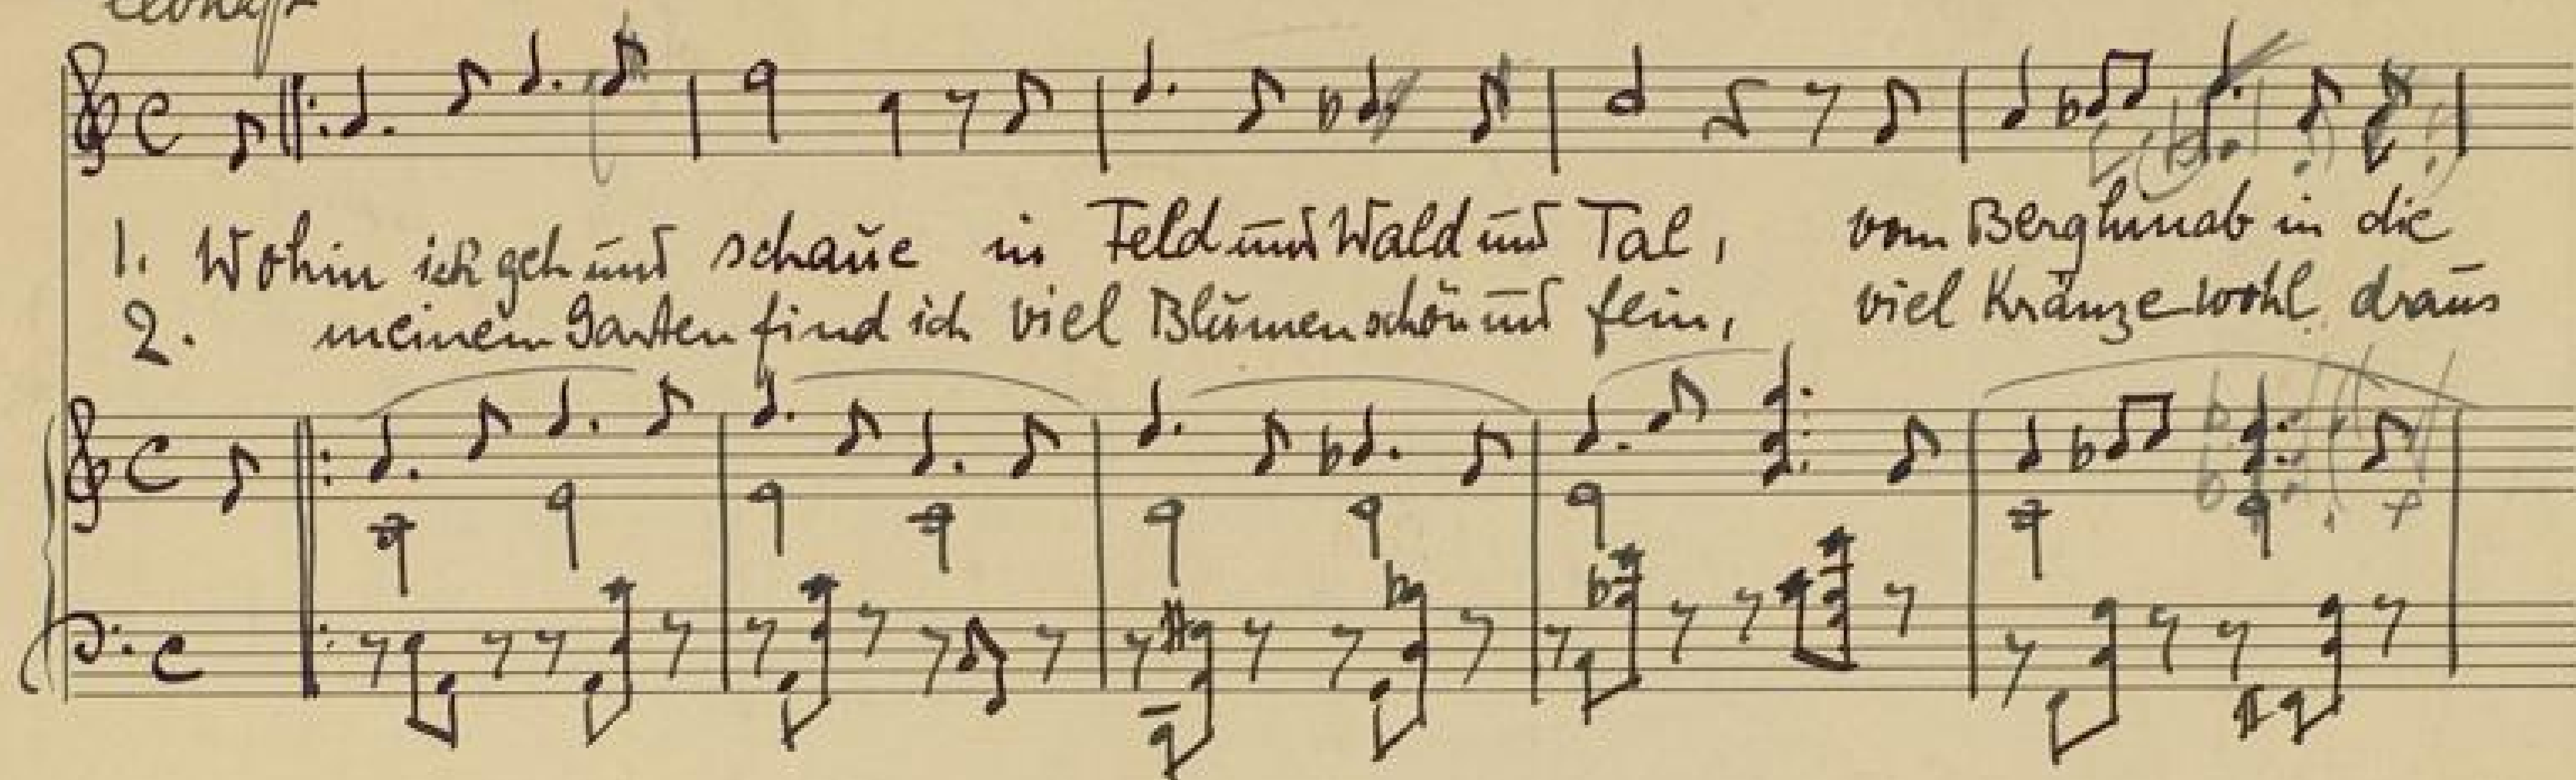 Lebhaft
1. Wohin ich geh und schaue in Feld und Wald und Tal, vom Berg hinab in die
2. meinem Garten find ich viel Blumen schön und fein, viel Kränze wohl draus